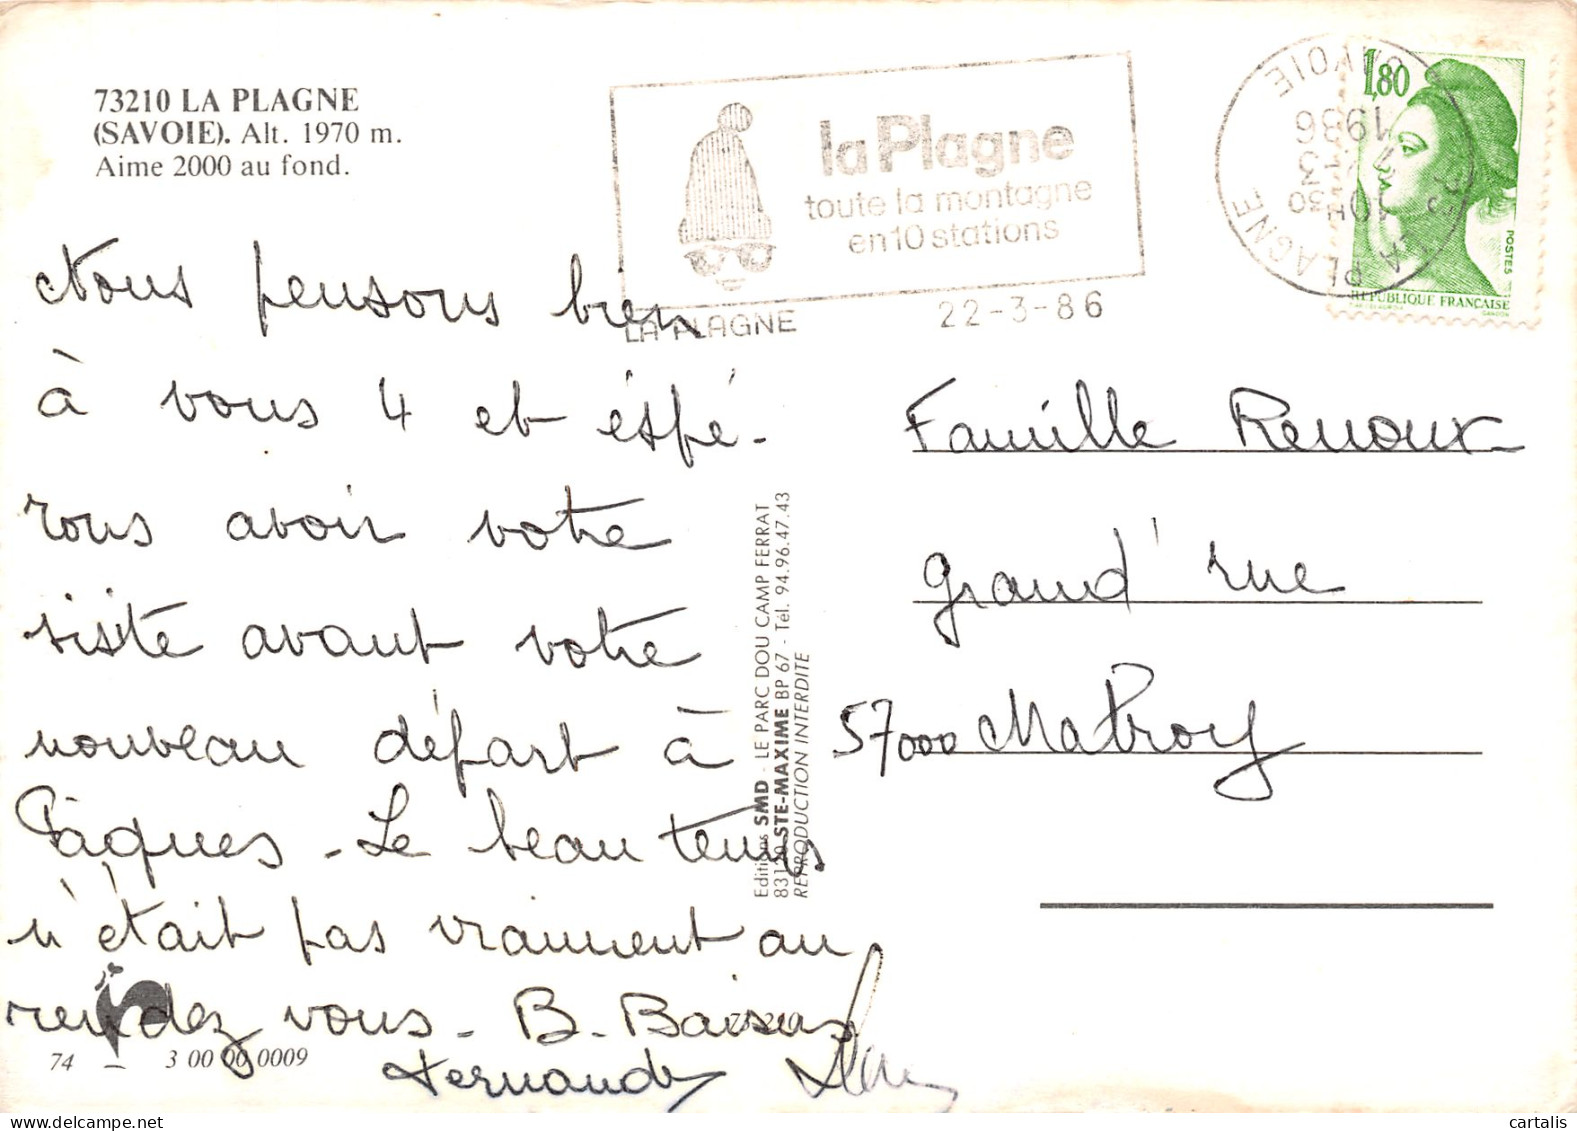 73210 LA PLAGNE
(SAVOIE). Alt. 1970 m.
Aime 2000 au fond.
la Plagne
toute la montagne
en 10 stations
LA PLAGNE
22-3-86
LA PLAGNE
SAVOIE
1986
1,80
POSTES
RÉPUBLIQUE FRANÇAISE
GANDON
Nous pensons bien
à vous 4 et éspé-
rons avoir votre
visite avant votre
nouveau départ à
Pâques - Le beau temps
n'était pas vraiment au
rendez vous - B. Baisers
Fernandez
Famille Renoux
grand' rue
57000 Malroy
Editions SMD - LE PARC DOU CAMP FERRAT
83120 STE-MAXIME BP 67 - Tél. 94.96.47.43
REPRODUCTION INTERDITE
74
3 00 00 0009
cartalis